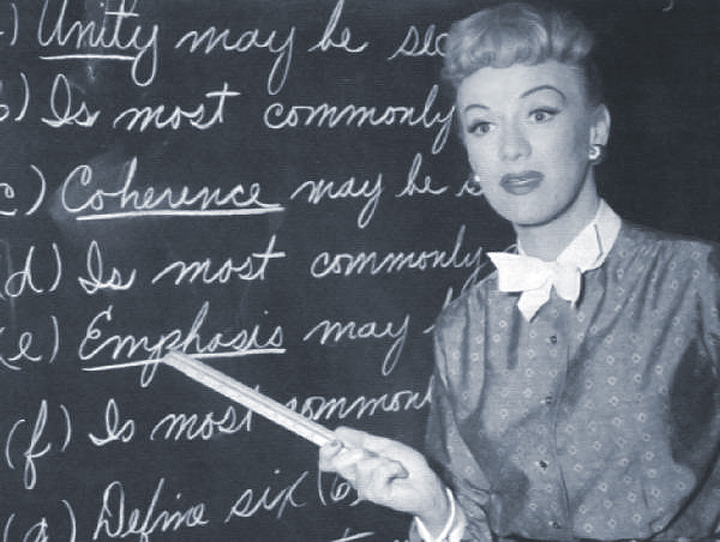 ) Unity may be sec
b) Is most commonly
c) Coherence may be s
(d) Is most commonly
(e) Emphasis may
(f) Is most common
(g) Define six (6)